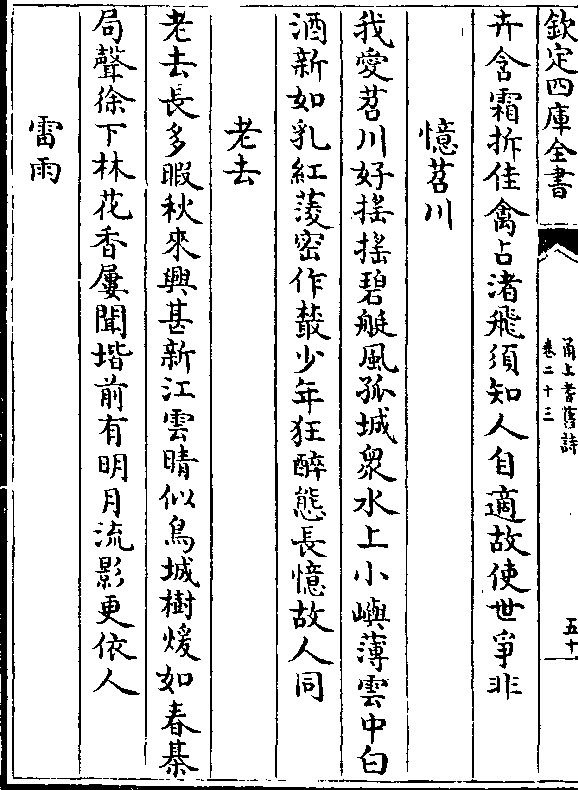 欽定四庫全書
甬上耆舊詩
卷二十三
五十
卉含霜折佳禽占渚飛須知人自適故使世爭非
憶苕川
我愛苕川好搖搖碧艇風孤城衆水上小嶼薄雲中白
酒新如乳紅菱密作叢少年狂醉態長憶故人同
老去
老去長多暇秋來興甚新江雲晴似鳥城樹煖如春棊
局聲徐下林花香屢聞堦前有明月流影更依人
雷雨